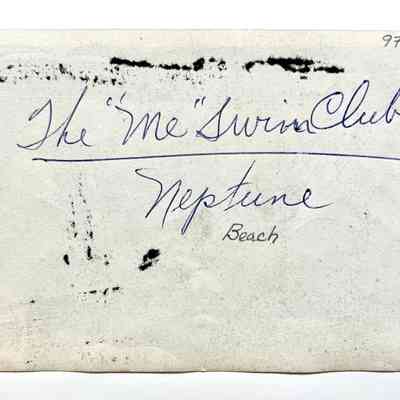 97
The "Me" Swim Club
Neptune
Beach